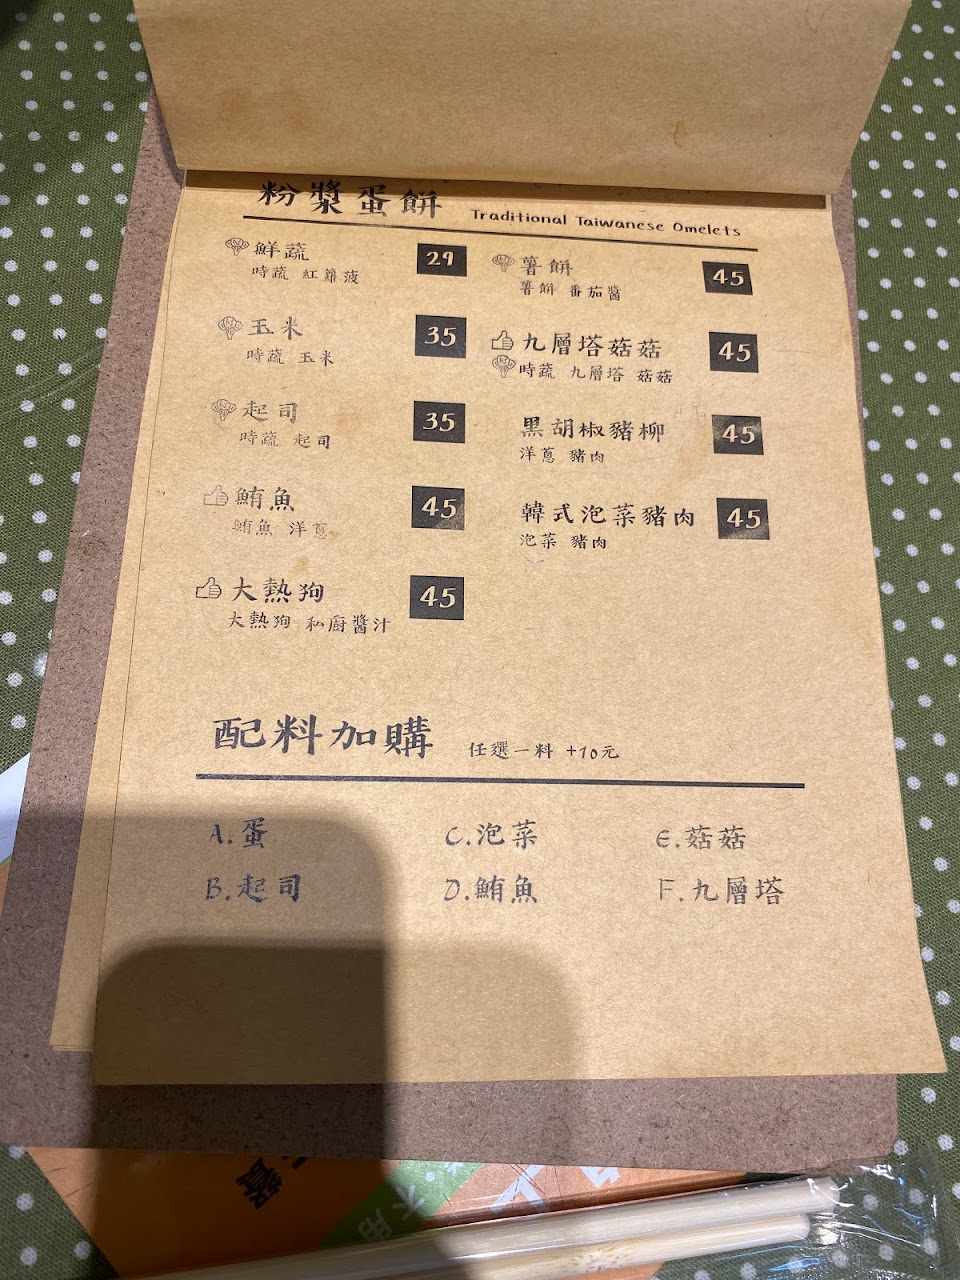 粉漿蛋餅 Traditional Taiwanese Omelets
鮮蔬 29
時蔬 紅蘿菠
玉米 35
時蔬 玉米
起司 35
時蔬 起司
鮪魚 45
鮪魚 洋蔥
大熱狗 45
大熱狗 私廚醬汁
薯餅 45
薯餅 番茄醬
九層塔菇菇 45
時蔬 九層塔 菇菇
黑胡椒豬柳 45
洋蔥 豬肉
韓式泡菜豬肉 45
泡菜 豬肉
配料加購 任選一料 +10元
A.蛋 C.泡菜 E.菇菇
B.起司 D.鮪魚 F.九層塔